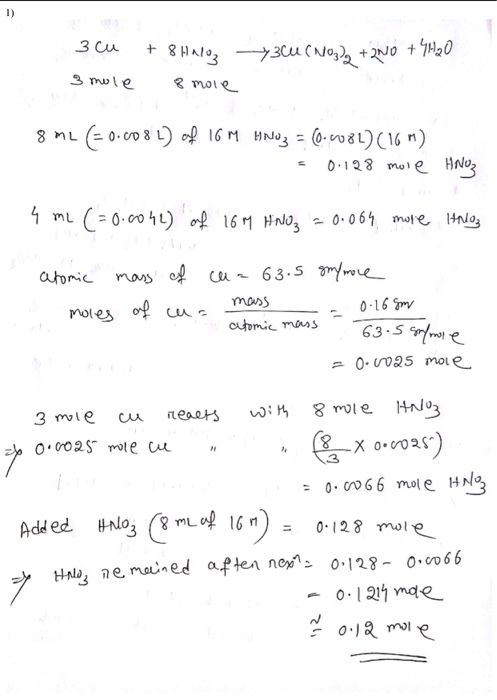 1)
3Cu + 8HNO3 → 3Cu(NO3)2 + 2NO + 4H2O
3 mole 8 mole
8 mL (= 0.008L) of 16 M HNO3 = (0.008L)(16 M)
= 0.128 mole HNO3
4 mL (= 0.004L) of 16 M HNO3 = 0.064 mole HNO3
atomic mass of Cu = 63.5 gm/mole
moles of Cu = mass / atomic mass = 0.16 gm / 63.5 gm/mole
= 0.0025 mole
3 mole Cu reacts with 8 mole HNO3
⇒ 0.0025 mole Cu " " (8/3 × 0.0025)
= 0.0066 mole HNO3
Added HNO3 (8 mL of 16 M) = 0.128 mole
⇒ HNO3 remained after rexn = 0.128 - 0.0066
= 0.1214 mole
≃ 0.12 mole